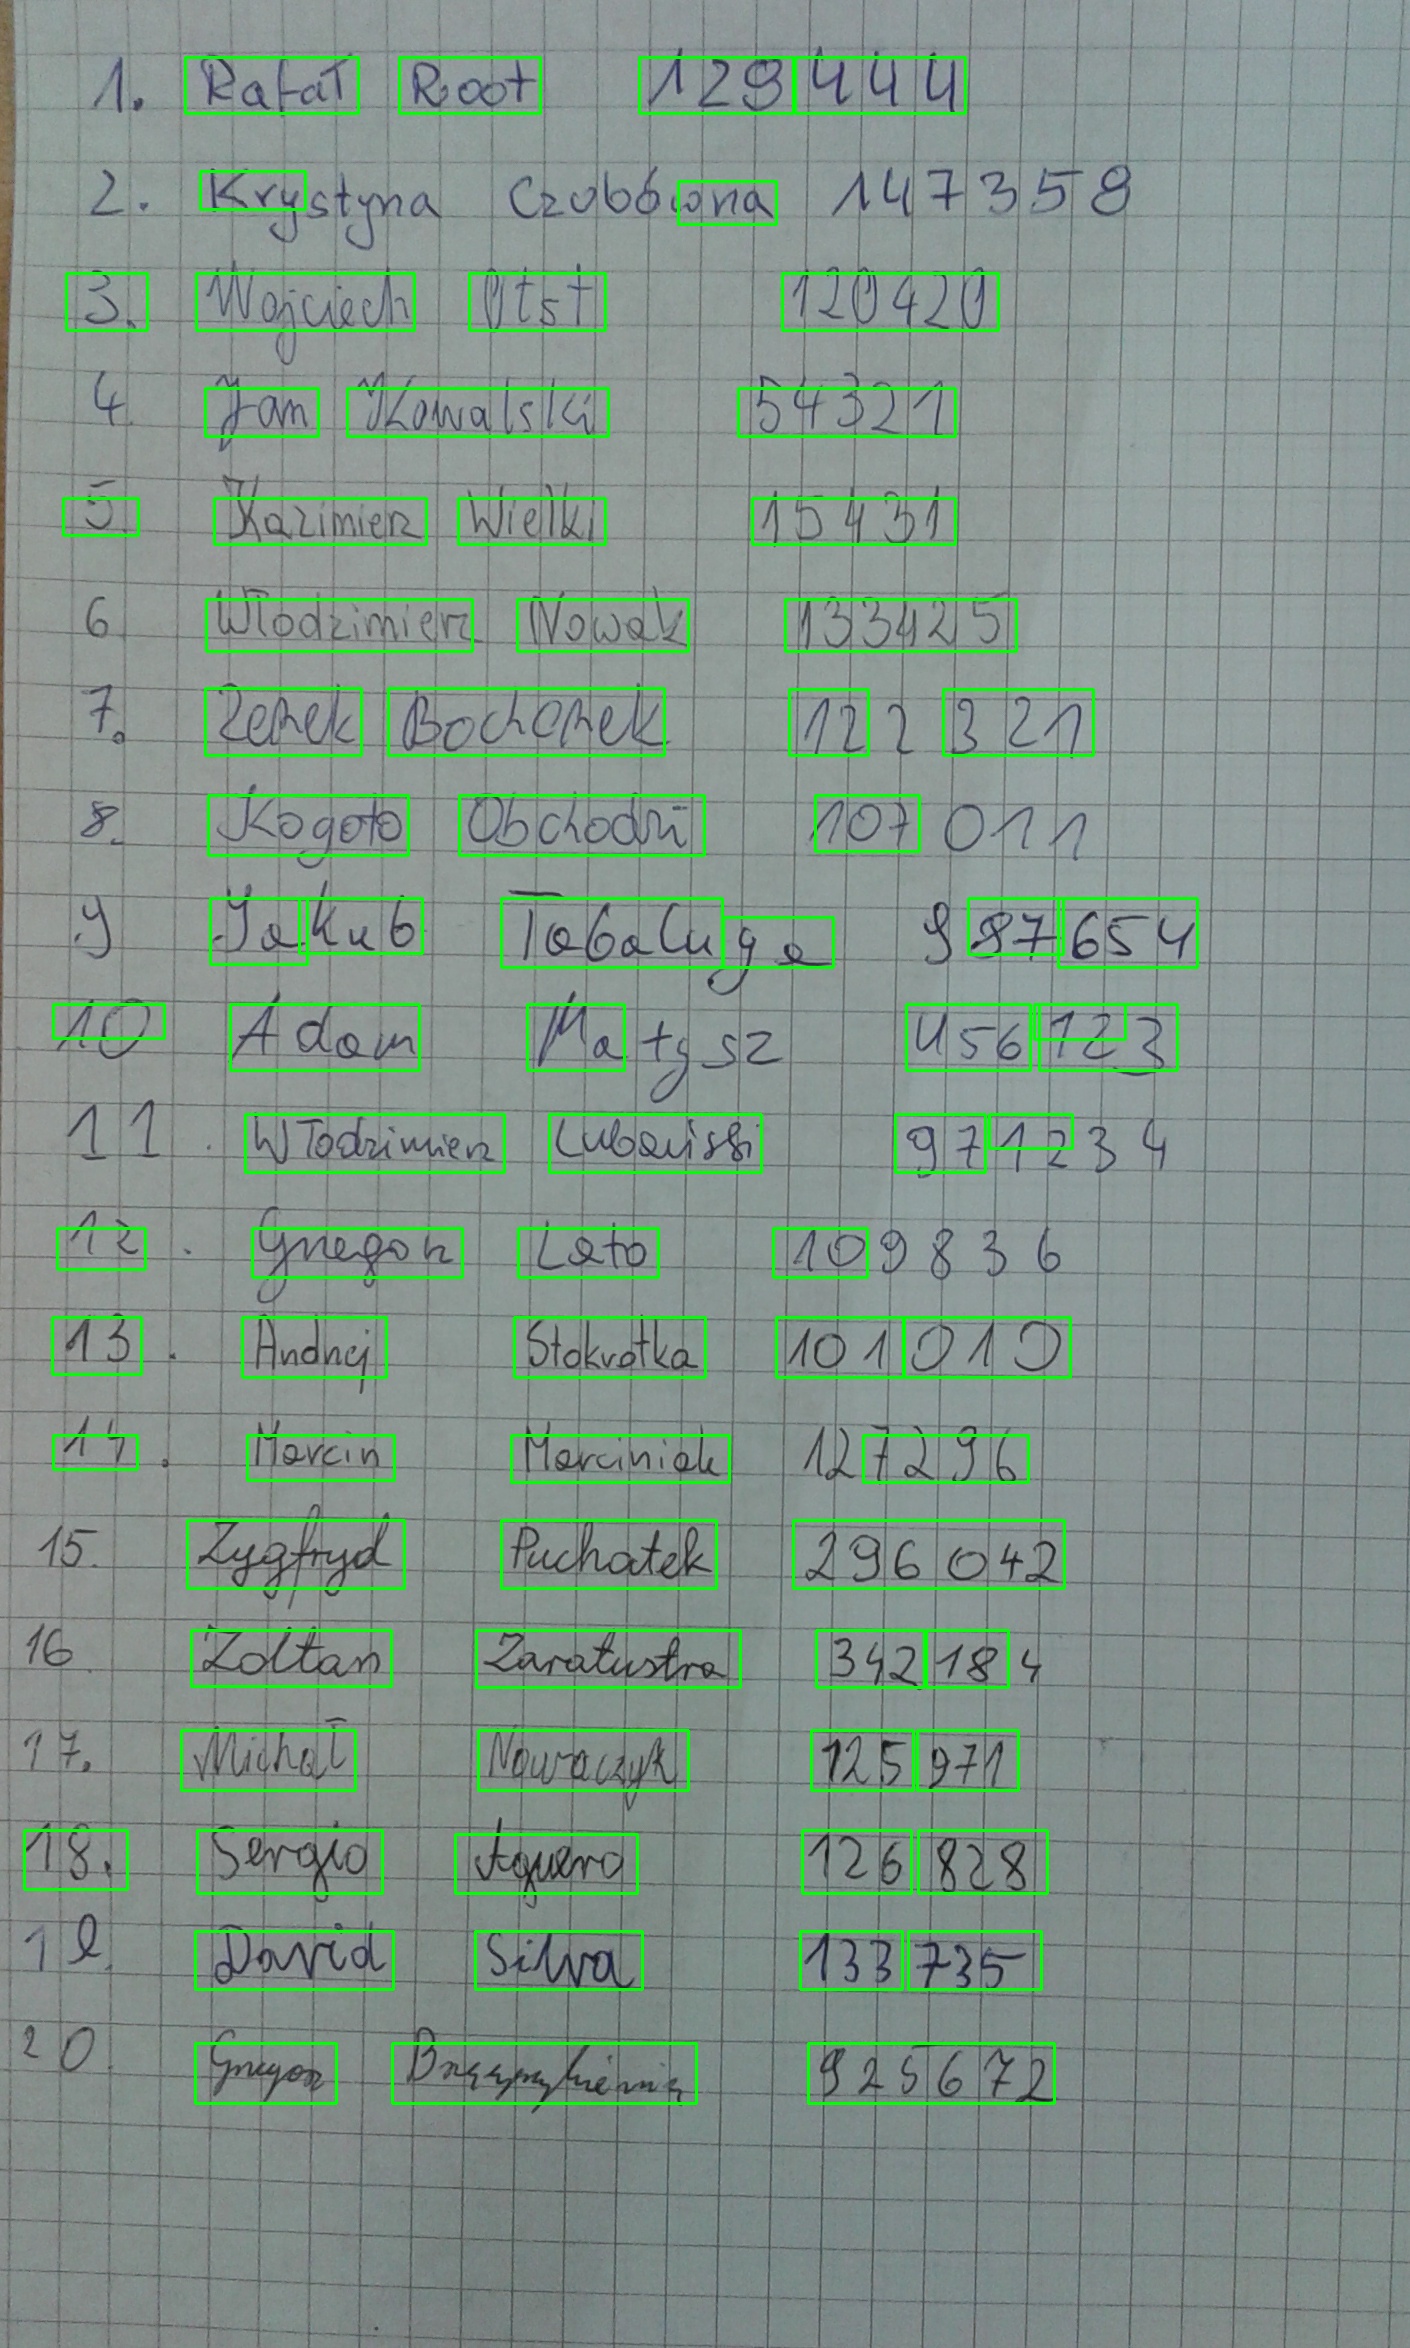 1. Rafał Root 129444
2. Krystyna Czubówna 147359
3. Wojciech Otst 120420
4 Jan Kowalski 54321
5. Kazimierz Wielki 15431
6 Włodzimierz Nowak 133425
7. Zenek Bochenek 122 321
8. Kogoto Obchodzi 107 011
9 Jakub Tabaluga 987654
10 Adam Matysz 456123
11. Włodzimierz 971234
12. Grzegorz Lato 109836
13. Andrzej Stokrotka 101010
14. Marcin Marciniak 127296
15. Zygfryd Puchatek 296042
16 Zoltan Zaratustra 342184
17. Michał Nowaczyk 125971
18. Sergio Aguero 126828
19. David Silva 133735
20. Grzegorz 925672